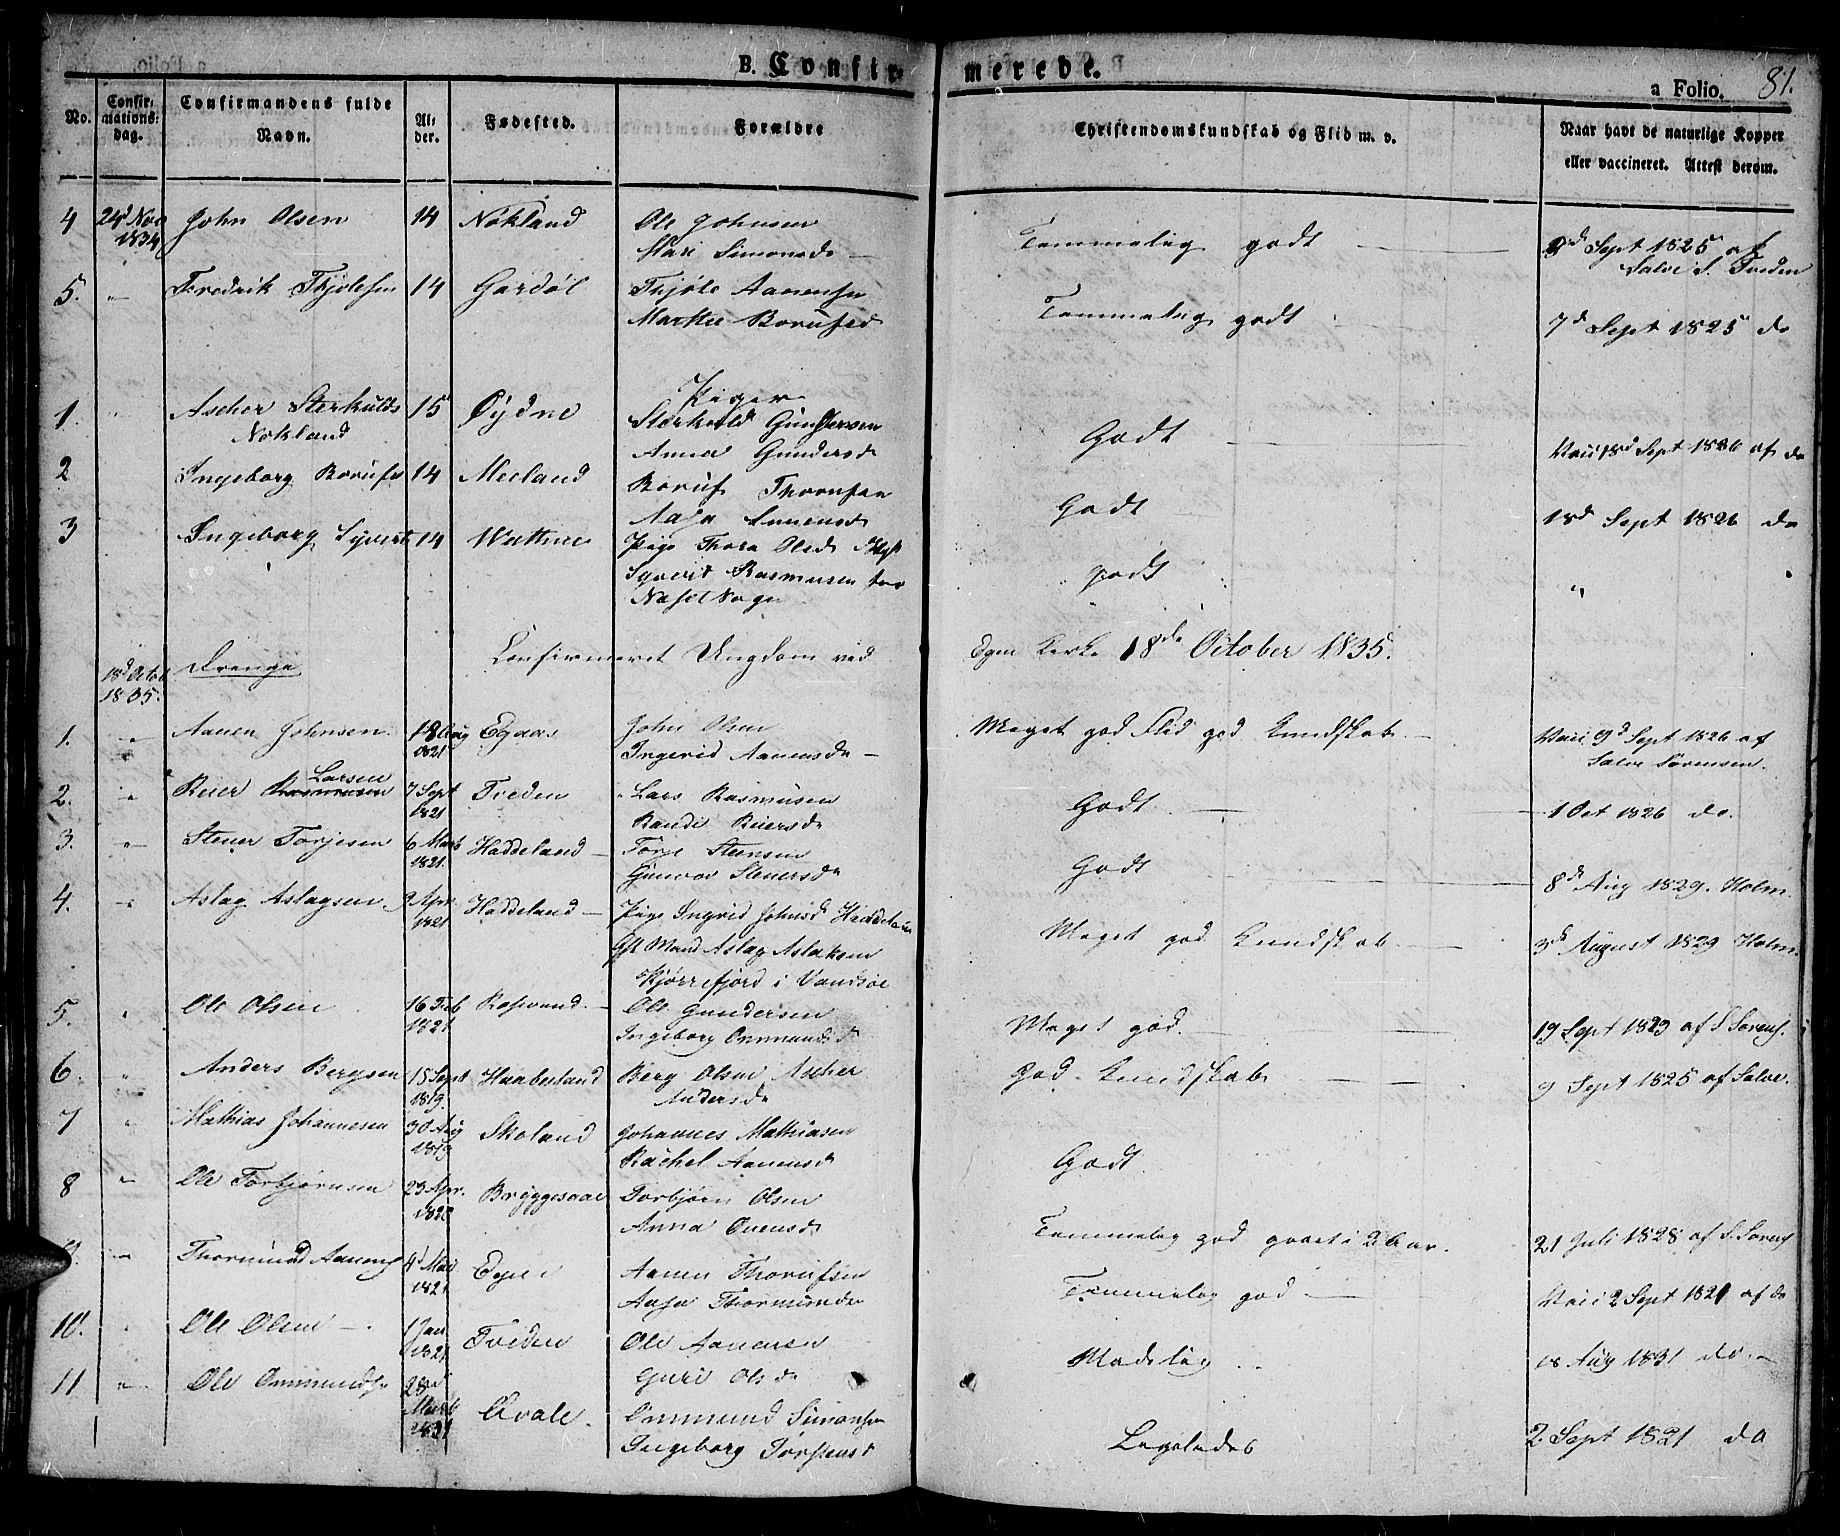 B. Confir-
merede.
a Folio. 81.
No.
Confir-
mations-
dag.
Confirmandens fulde
Navn.
Al-
der.
Fødested.
Forældre
Christendomskundskab og Flid m. v.
Naar havt de naturlige Kopper
eller vaccineret. Attest derom.
4 24d Nov 1834 John Olsen 14 Nökland Ole Johnsen
Mari Simonsd
Temmelig godt
Sept 1825 af
Salve S. Tveden
5. Fredrik Thjölsen 14 Gardöl Thjöls Aanensen
Borufsd
Temmelig godt
7d Sept 1825 do
Piger
1. Ascher Sterkulds 15 Øydne Sterkuld Gundersen
Nökland
Anna Gundersd
Godt
Vacc 18d Sept 1826 af do
2 Ingeborg Borufsd 14 Mecland Boruf Thorufsen
Aasa Aanensd
Godt
18d Sept 1826 do
3 Ingeborg Syverts 14 Pige Thora Olsd
Syvert Rasmusen fra
Sogn
godt
18d Octob
1835.
Drenge
Confirmeret Ungdom ved
Egen Kirke 18de October 1835.
1. Aanen Johnsen 18 Aug
1821
Egaas John Olsen
Ingerid Aanensd
Meget god Flid god Kundskab
Vacc 9d Sept 1826 af
Salve Sörensen.
2. Reier Rasmusen Larsen 7 Sept
1821
Tveden Lars Rasmusen
Randi Reiersd
Godt
1 Oct 1826 do.
3. Stener Torjesen 6 Marts
1821.
Haddeland Torje Steensen
Gunvor Stenersd
Godt
8d Aug 1829. Holm.
4. Aslag Aslagsen Apr.
1821
Haddeland Pige Ingrid Johnsd Haddeland
Gft Mand Aslag Aslaksen
Kjörrefjord i Vandsöe
Meget god Kundskab
3d August 1829 Holm.
5. Ole Olsen 16 Feb
1821
Rosevand Ole Gundersen
Ingeborg Ommundsd
Meget god.
19 Sept 1829 af S Sörens.
6. Anders Bergsen 15 Sept
1819.
Haaberland Berg Olsen Ascher
Andersd
God Kundskab
9 Sept 1825 af Salve.
7 Mathias Johannesen 30 Aug
1819
Skoland Johannes Mathiasen
Rachel Aanensd
Godt.
8 Ole Torbjörnsen 23 Apr.
1820
Bryggesaae Torbjörn Olsen
Anna Evensd
Temmelig god gaaet i 2 Aar.
21 Juli 1828 af S. Sörens
9. Thormund Aanens 4 Mai
1821
Egen Aanen Thorufsen
Aasa Thormundsd
Temmelig god
Vacc 2 Sept 1821 af do
10. Ole Olsen 1 Jan
1821
Tveden Ole Aanensen
Guri Olsd
Madelig
18 Aug 1831 do.
11 Ole Ommunds 28
Marts
1821
Qvale. Ommund Simonsen
Ingeborg Torstensd
Ligeledes
2 Sept 1821 do